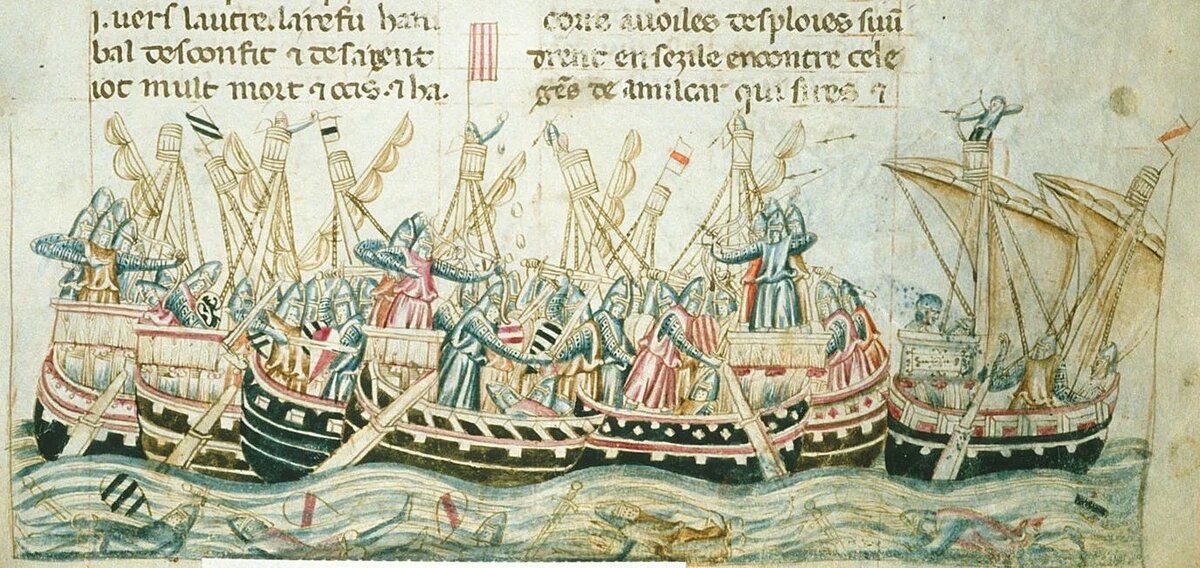 uers lautre. la refu hani
bal desconfit ⁊ de sa gent
iot mult mort ⁊ ocis. ⁊ ha.
corre a uoiles desploies si uin
drent en sezile encontre cele
gēs de amilcar qui sires ⁊